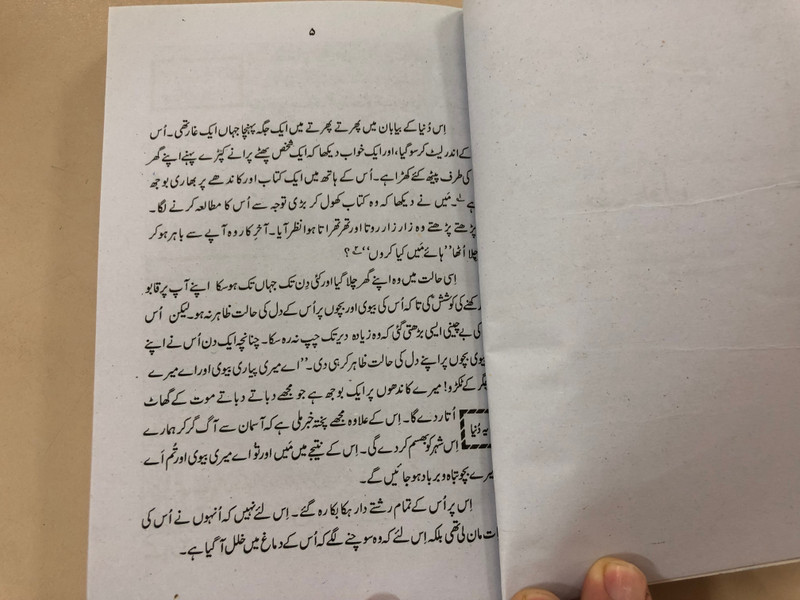 ۵
اِس دُنیا کے بیابان میں پھرتے پھرتے میں ایک جگہ پہنچا جہاں ایک غار تھی۔ اُس
کے اندر لیٹ کر سو گیا، اور ایک خواب دیکھا کہ ایک شخص پھٹے پرانے کپڑے پہنے اپنے گھر
کی طرف پیٹھ کئے کھڑا ہے۔ اُس کے ہاتھ میں ایک کتاب اور کاندھے پر بھاری بوجھ
ہے۱۔ مَیں نے دیکھا کہ وہ کتاب کھول کر بڑی توجہ سے اُس کا مطالعہ کرنے لگا۔
پڑھتے پڑھتے وہ زار زار روتا اور تھرتھراتا ہوا نظر آیا۔ آخرِ کار وہ آپے سے باہر ہو کر
چلا اُٹھا ”ہائے مَیں کیا کروں“۲؟
اِسی حالت میں وہ اپنے گھر چلا گیا اور کئی دِن تک جہاں تک ہو سکا اپنے آپ پر قابو
رکھنے کی کوشش کی تاکہ اُس کی بیوی اور بچوں پر اُس کے دل کی حالت ظاہر نہ ہو۔ لیکن اُس
کی بے چینی ایسی بڑھتی گئی کہ وہ زیادہ دیر تک چپ نہ رہ سکا۔ چنانچہ ایک دن اُس نے اپنے
بیوی بچوں پر اپنے دل کی حالت ظاہر کر ہی دی۔ ”اے میری پیاری بیوی اور اے میرے
جگر کے ٹکڑو! میرے کاندھوں پر ایک بوجھ ہے جو مجھے دباتے دباتے موت کے گھاٹ
اُتار دے گا۔ اِس کے علاوہ مجھے پختہ خبر ملی ہے کہ آسمان سے آگ گر کر ہمارے
یہ دُنیا
اِس شہر کو بھسم کر دے گی۔ اِس کے نتیجے میں مَیں اور تُو اے میری بیوی اور تُم اَے
میرے بچو تباہ و برباد ہو جائیں گے۔
اِس پر اُس کے تمام رشتے دار ہکا بکا رہ گئے۔ اِس لئے نہیں کہ اُنہوں نے اُس کی
بات مان لی تھی بلکہ اِس لئے کہ وہ سوچنے لگے کہ اُس کے دماغ میں خلل آ گیا ہے۔